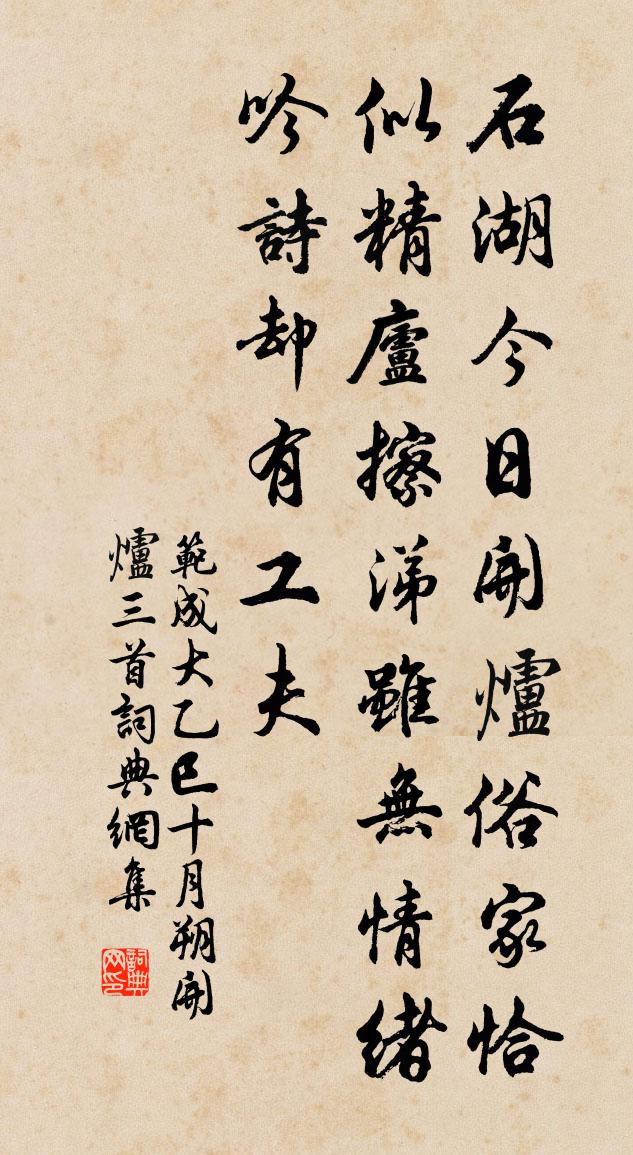 石湖今日開爐俗家恰
似精廬擦涕雖無情緒
吟詩却有工夫
範成大乙巳十月朔開
爐三首詞典網集
詞典网印